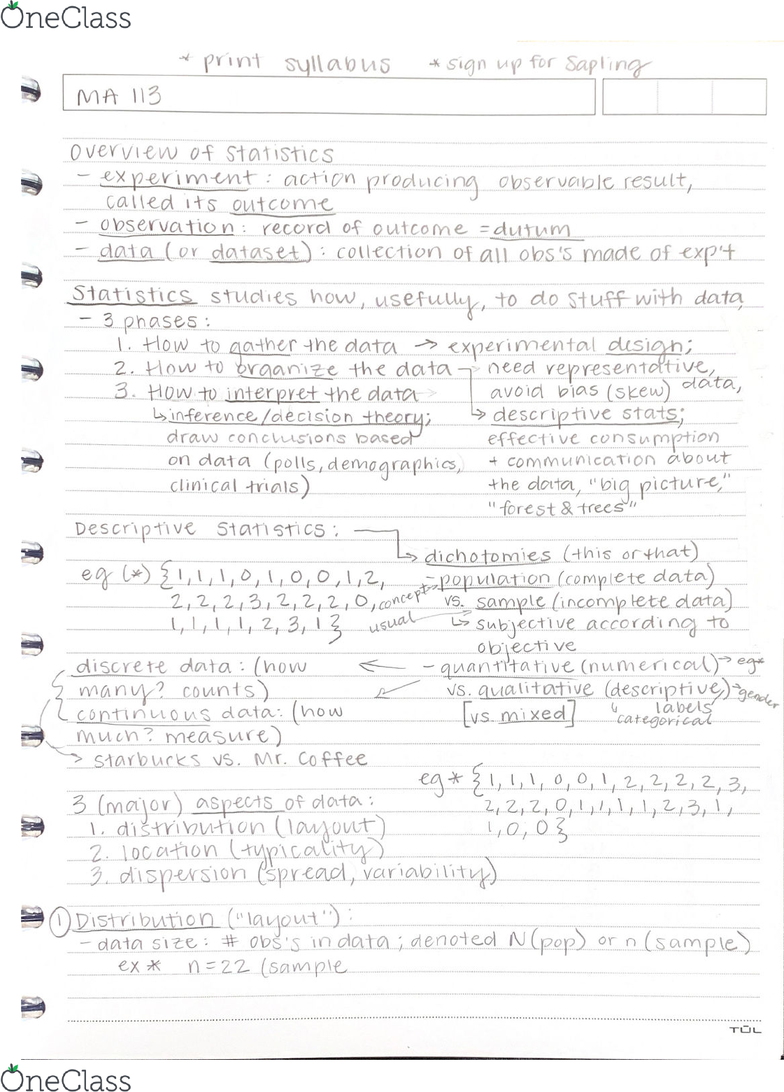 OneClass
* print syllabus * sign up for Sapling
MA 113
Overview of Statistics
- experiment : action producing observable result,
called its outcome
- observation : record of outcome = dutum
- data (or dataset) : collection of all obs's made of exp't
Statistics studies how, usefully, to do stuff with data
- 3 phases :
1. How to gather the data → experimental design;
2. How to organize the data need representative,
3. How to interpret the data avoid bias (skew) data,
↳ inference/decision theory; ↳ descriptive stats;
draw conclusions based effective consumption
on data (polls, demographics, + communication about
clinical trials) the data, "big picture,"
"forest & trees"
Descriptive Statistics :
↳ dichotomies (this or that)
eg (*) {1, 1, 1, 0, 1, 0, 0, 1, 2, - population (complete data)
2, 2, 2, 3, 2, 2, 2, 0, concept vs. sample (incomplete data)
1, 1, 1, 1, 2, 3, 1} usual ↳ subjective according to
objective
discrete data : (how ← - quantitative (numerical) → eg*
many? counts) ← vs. qualitative (descriptive) → gender
continuous data : (how [vs. mixed] ↳ labels
much? measure) categorical
→ Starbucks vs. Mr. Coffee
eg * {1, 1, 1, 0, 0, 1, 2, 2, 2, 2, 3,
3 (major) aspects of data : 2, 2, 2, 0, 1, 1, 1, 1, 2, 3, 1,
1. distribution (layout) 1, 0, 0}
2. location (typicality)
3. dispersion (spread, variability)
① Distribution ("layout") :
- data size : # obs's in data ; denoted N (pop) or n (sample)
ex * n = 22 (sample
TŪL
OneClass